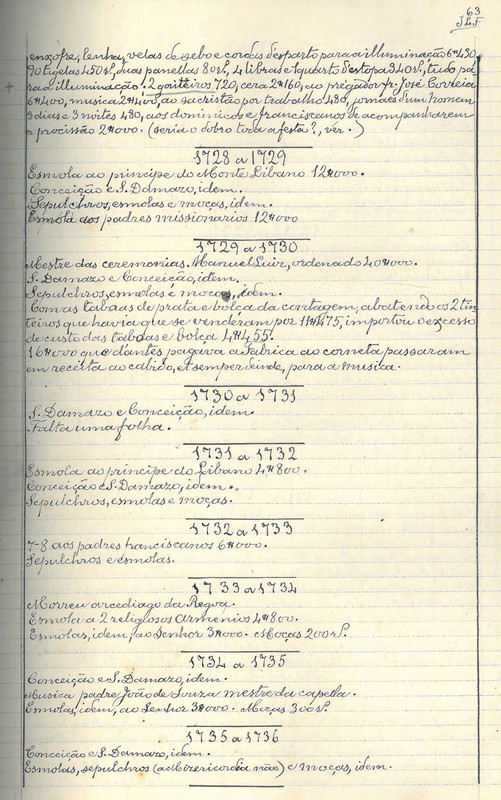 63
J.L.F.
enxofre, lenha, velas de sebo e cordas d'esparto para a illuminação 6#430,
90 tigelas 450 r.s, duas panellas 80 r.s, 4 libras e 1 quarto d'estopa 340 r.s, tudo pa
ra a illuminação! 2 gaiteiros 720, cera 2#160, ao prégador fr. José Correia
6#400, musica 2#400, ao sacristão por trabalho 480, jornaes d'um homem
3 dias e 3 noites 480, aos dominicos e franciscanos de acompanharem
a procissão 2#000. (seria o dobro toda a festa?, ver.)
1728 a 1729
Esmola ao principe do Monte Libano 12#000.
Conceição e S. Damazo, idem.
Sepulchros, esmolas e moças, idem.
Esmola aos padres missionarios 12#000
1729 a 1730
Mestre das ceremonias Manuel Luiz, ordenado 40#000.
S. Damazo e Conceição, idem.
Sepulchros, esmolas e moças, idem.
Com as taboas de prata e bolça da contagem, abatendo os 2 tin
teiros que havia que se venderam por 11#475, importou o excesso
de custo das taboas e bolça 4#455.
16#000 que dantes pagava a Fabrica ao corneta passaram
em receita ao cabido, et semper deinde, para a musica.
1730 a 1731
S. Damazo e Conceição, idem.
Falta uma folha.
1731 a 1732
Esmola ao principe do Libano 4#800.
Conceição e S. Damazo, idem.
Sepulchros, esmolas e moças.
1732 a 1733
7-8 aos padres franciscanos 6#000.
Sepulchros e esmolas.
1733 a 1734
Morreu arcediago da Regoa.
Esmola a 2 religiosos Armenios 4#800.
Esmolas, idem, ao Senhor 3#000. Moças 200 r.s.
1734 a 1735
Conceição e S. Damazo, idem.
Musica padre João de Souza mestre da capella.
Esmolas, idem, ao Senhor 3#000. Moças 300 r.s.
1735 a 1736
Conceição e S. Damazo, idem.
Esmolas, sepulchros (a Mizericordia não) e moças, idem.